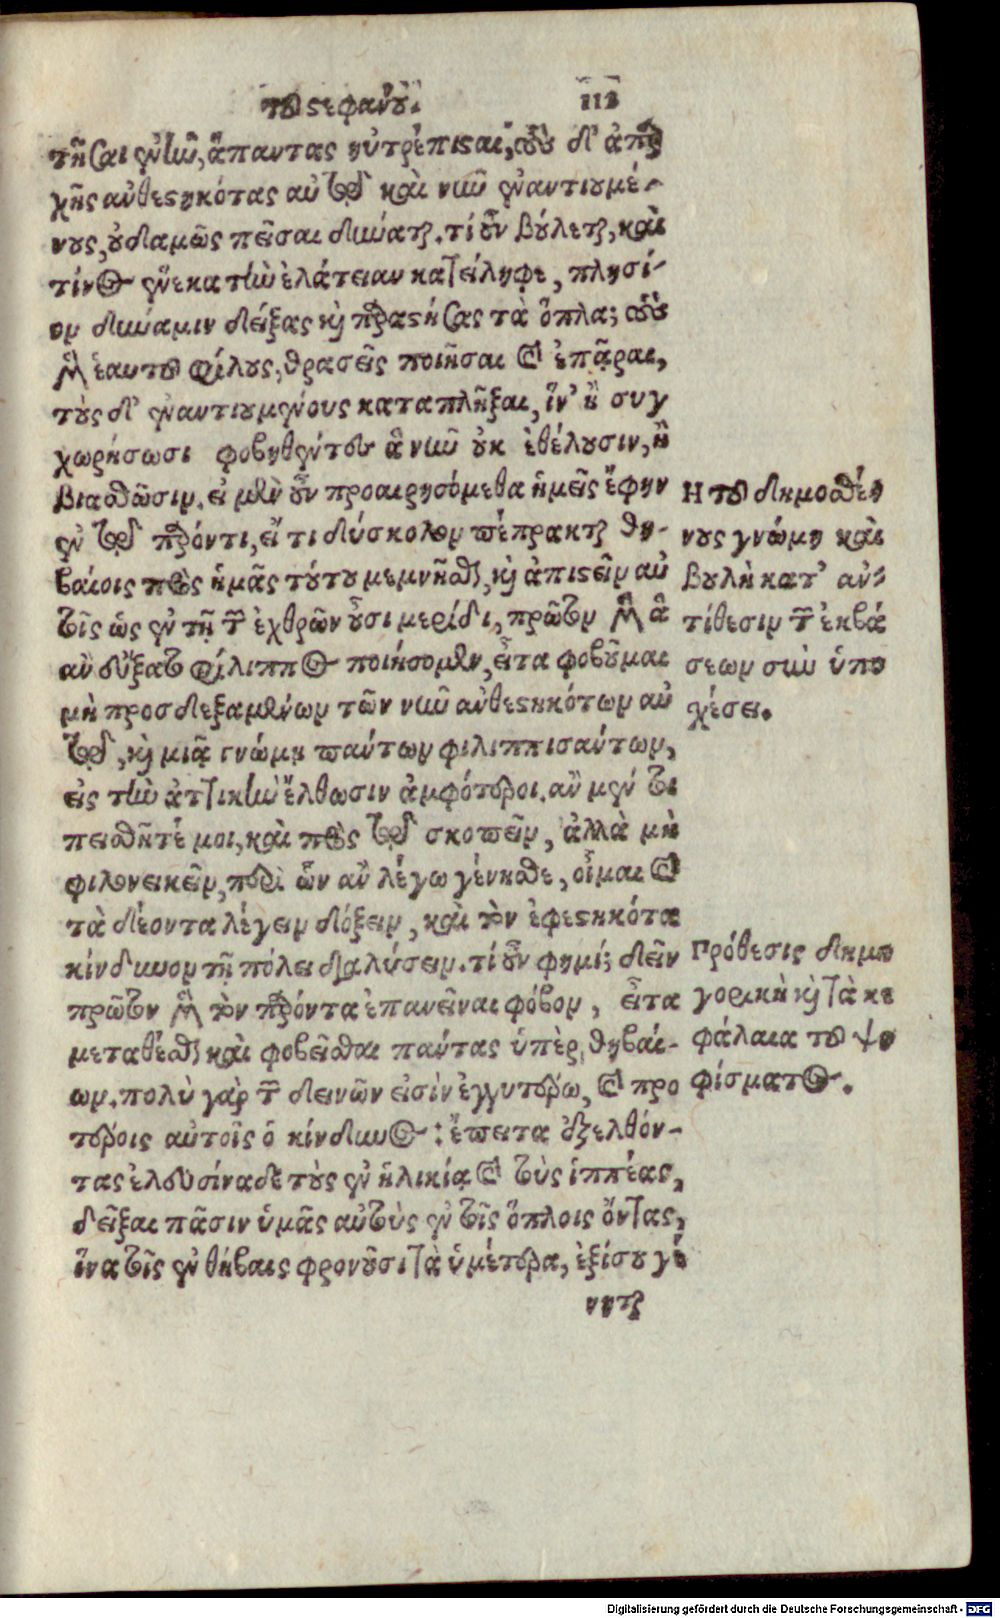 τοῦ στεφάνου. 112
τῆσαι ἐνῆν, ἅπαντας ηὐτρέπισται, τοὺς δ' ἀπ' ἀρ
χῆς ἀνθεστηκότας αὐτῷ καὶ νῦν ἐναντιουμέ-
νους, οὐδαμῶς πεῖσαι δύναται. τί οὖν βούλεται, καὶ
τίνος ἕνεκα τὴν ἐλάτειαν κατείληφε, πλησί-
ον δύναμιν δείξας καὶ παραστήσας τὰ ὅπλα; τοὺς
μὲν ἑαυτοῦ φίλους, θρασεῖς ποιῆσαι καὶ ἐπᾶραι,
τοὺς δ' ἐναντιουμένους καταπλῆξαι, ἵν' ἢ συγ
χωρήσωσι φοβηθέντες ἃ νῦν οὐκ ἐθέλουσιν, ἢ
βιασθῶσιν. εἰ μὲν οὖν προαιρησόμεθα ἡμεῖς ἔφην
ἐν τῷ παρόντι, εἴ τι δύσκολον πέπρακται θη-
βαίοις πρὸς ἡμᾶς τούτου μεμνῆσθαι, καὶ ἀπιστεῖν αὐ
τοῖς ὡς ἐν τῇ τῶν ἐχθρῶν οὖσι μερίδι, πρῶτον μὲν ἃ
ἂν εὔξαιτο φίλιππος ποιήσομεν, εἶτα φοβοῦμαι
μὴ προσδεξαμένων τῶν νῦν ἀνθεστηκότων αὐ
τῷ, καὶ μιᾷ γνώμῃ πάντων φιλιππισάντων,
εἰς τὴν ἀττικὴν ἔλθωσιν ἀμφότεροι. ἂν μέν τοι
πεισθῆτέ μοι, καὶ πρὸς τῷ σκοπεῖν, ἀλλὰ μὴ
φιλονεικεῖν, περὶ ὧν ἂν λέγω γένησθε, οἶμαι καὶ
τὰ δέοντα λέγειν δόξειν, καὶ τὸν ἐφεστηκότα
κίνδυνον τῇ πόλει διαλύσειν. τί οὖν φημί; δεῖν
πρῶτον μὲν τὸν παρόντα ἐπανεῖναι φόβον, εἶτα
μεταθέσθαι καὶ φοβεῖσθαι πάντας ὑπὲρ θηβαί-
ων. πολὺ γὰρ τῶν δεινῶν εἰσὶν ἐγγυτέρω, καὶ προ
τέροις αὐτοῖς ὁ κίνδυνος: ἔπειτα ἐξελθόν-
τας ἐλευσίναδε τοὺς ἐν ἡλικίᾳ καὶ τοὺς ἱππέας,
δεῖξαι πᾶσιν ὑμᾶς αὐτοὺς ἐν τοῖς ὅπλοις ὄντας,
ἵνα τοῖς ἐν θήβαις φρονοῦσι τὰ ὑμέτερα, ἐξίσου γέ
νηται
Η τοῦ δημοσθέ
νους γνώμη καὶ
βουλὴ κατ' ἀν-
τίθεσιν τῶν ἐκβά
σεων σὺν ὑπο
χέσει.
Πρόθεσις δημη
γορικὴ καὶ τὰ κε
φάλαια τοῦ ψη
φίσματος.
Digitalisierung gefördert durch die Deutsche Forschungsgemeinschaft - DFG